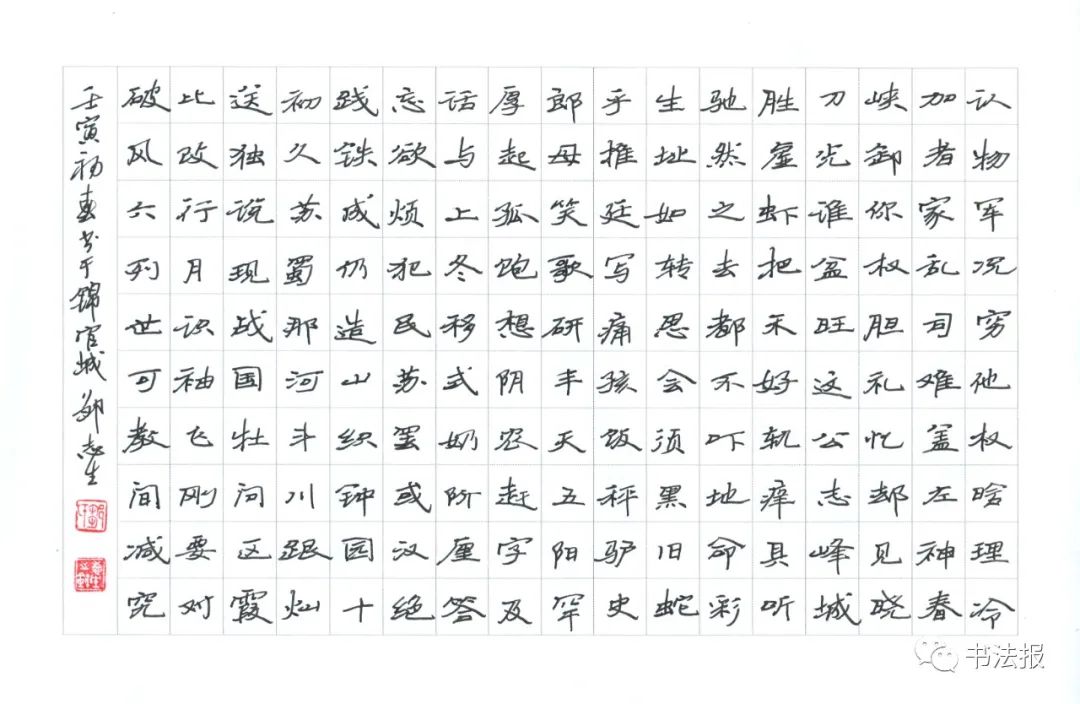 认物军况穷他权啥理冷
加者家乱司难盖左神春
峡卸你权胆礼忆却见晓
刀光谁盆旺这公志峰城
胜虚虾把禾好轨痒具听
驰然之去都不吓地命彩
生址如转思会须黑旧蛇
乎推廷写痛孩饭秤驴史
郎母笑歌研丰天五阳罕
厚起孤饱想阴农赶字及
话与上冬移式奶阶厘答
忘欲烦犯民苏罢或汉绝
践铁成仍造山织钟园十
初久苏蜀那河斗川跟灿
送独说现战国牡问区霞
比改行月识袖飞刚要对
破风六列世可教间减究
壬寅初春书于锦官城邹志生
书法报